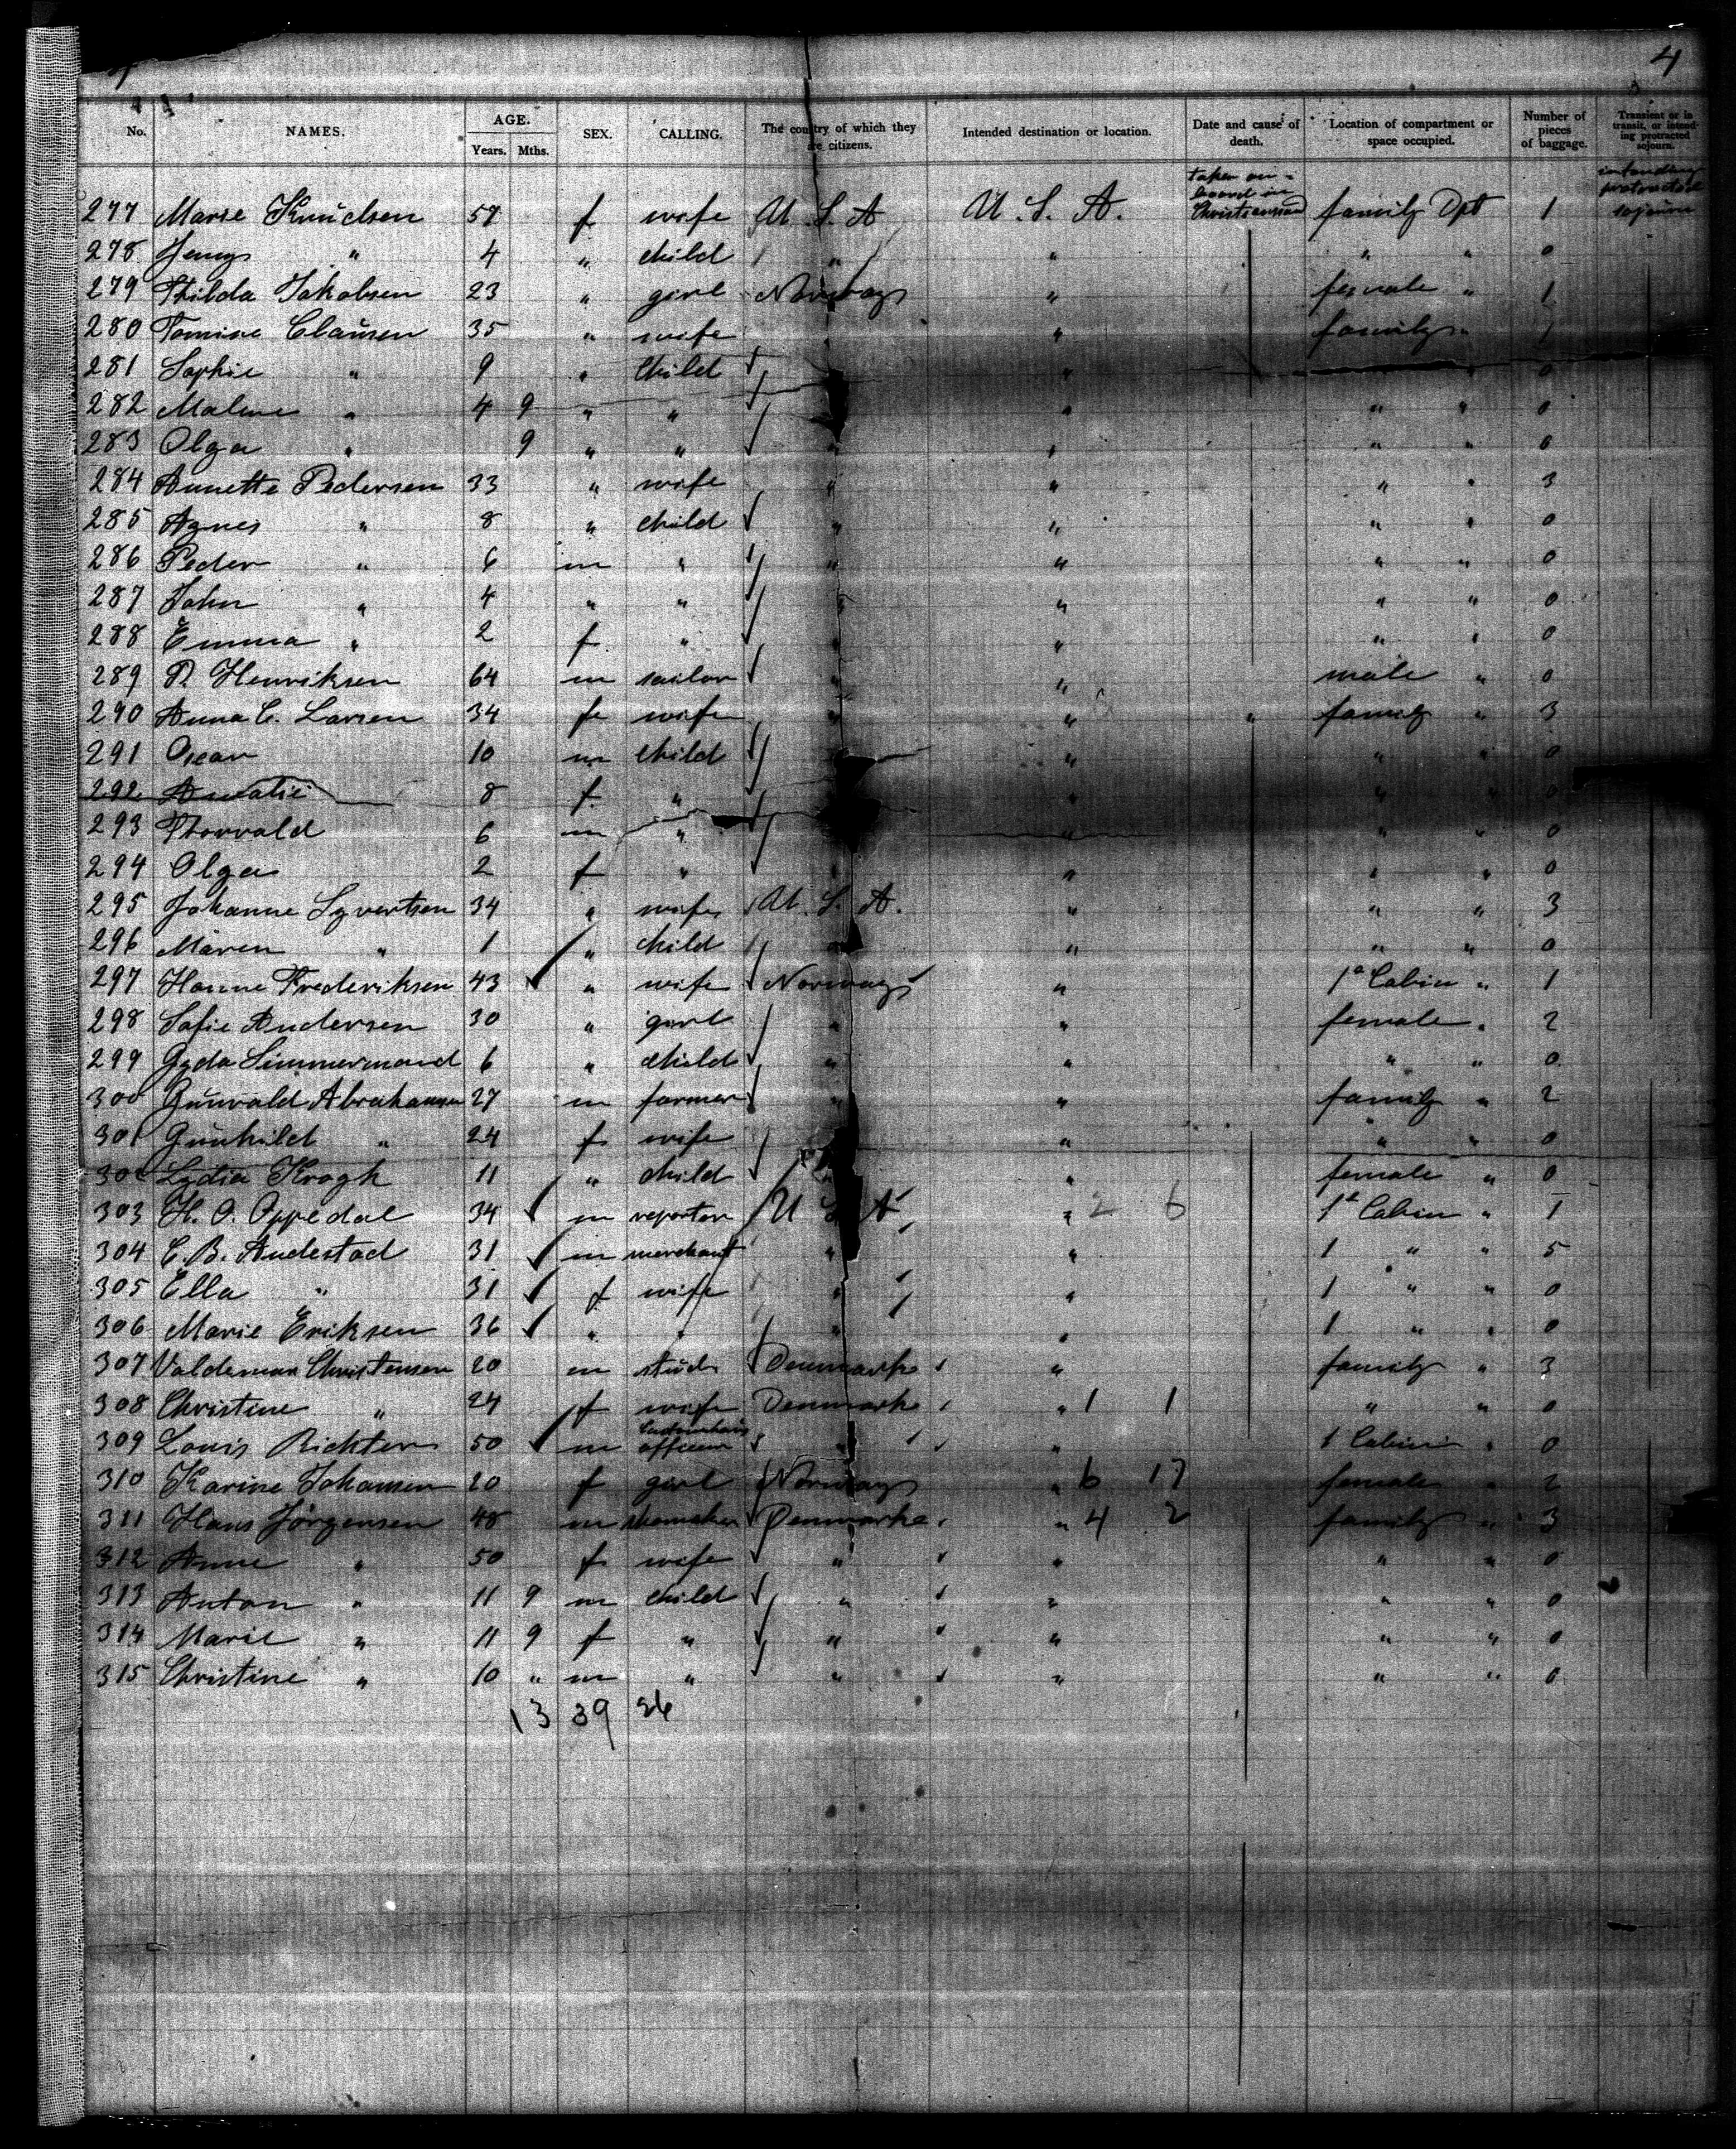 4
No. NAMES. AGE. Years. Mths. SEX. CALLING. The country of which they are citizens. Intended destination or location. Date and cause of death. Location of compartment or space occupied. Number of pieces of baggage. Transient or in transit, or intending protracted sojourn.
277 Marie Knudsen 57 f wife U. S. A U. S. A. taken on board in Christiansand family Dpt 1 intending protracted sojourn
278 Jenny " 4 " child " " " " 0
279 Thilda Jakobsen 23 " girl Norway " female " 1
280 Tomine Clausen 35 " wife " family " 1
281 Sophie " 9 " child " " 0
282 Maline " 4 9 " " " " " 0
283 Olga " 9 " " " " " " 0
284 Annette Pedersen 33 " wife " " " " 3
285 Agnes " 8 " child " " " " 0
286 Peder " 6 m " " " " " 0
287 John " 4 " " " " " " 0
288 Emma " 2 f " " " " " 0
289 P. Henriksen 64 m sailor " " male " 0
290 Anna C. Larsen 34 f wife " " " family " 3
291 Oscar 10 m child " " " 0
292 Amalie 8 f " " " " 0
293 Thorvald 6 m " " " " 0
294 Olga 2 f " " " " " 0
295 Johanne Syvertsen 34 " wife U. S. A. " " " 3
296 Maren " 1 " child " " " " 0
297 Hanne Frederiksen 43 " wife Norway " 1a Cabin " 1
298 Sofie Andersen 30 " girl " " female " 2
299 Gyda Simmermand 6 " child " " " " 0
300 Gunvald Abrahamsen 27 m farmer " " family " 2
301 Gunhild " 24 f wife " " " 0
302 Lydia Krogh 11 " child " female " 0
303 H. O. Oppedal 34 m reporter U S A " 2 6 1a Cabin " 1
304 C. B. Audestad 31 m merchant " " 1 " " 5
305 Ella " 31 f wife " " 1 " " 0
306 Marie Eriksen 36 " " " " 1 " " 0
307 Valdemar Christensen 20 m stud. Denmark " family " 3
308 Christine " 24 f wife Denmark " 1 1 " " 0
309 Louis Richter 50 m Customhaus officer " " 1 Cabin " 0
310 Karine Johansen 20 f girl Norway " 6 17 female " 2
311 Hans Jørgensen 48 m shomaker Denmark " 4 2 family " 3
312 Anne " 50 f wife " " " " 0
313 Anton " 11 9 m child " " " " 0
314 Marie " 11 9 f " " " " " 0
315 Christine " 10 " m " " " " " 0
13 39 26